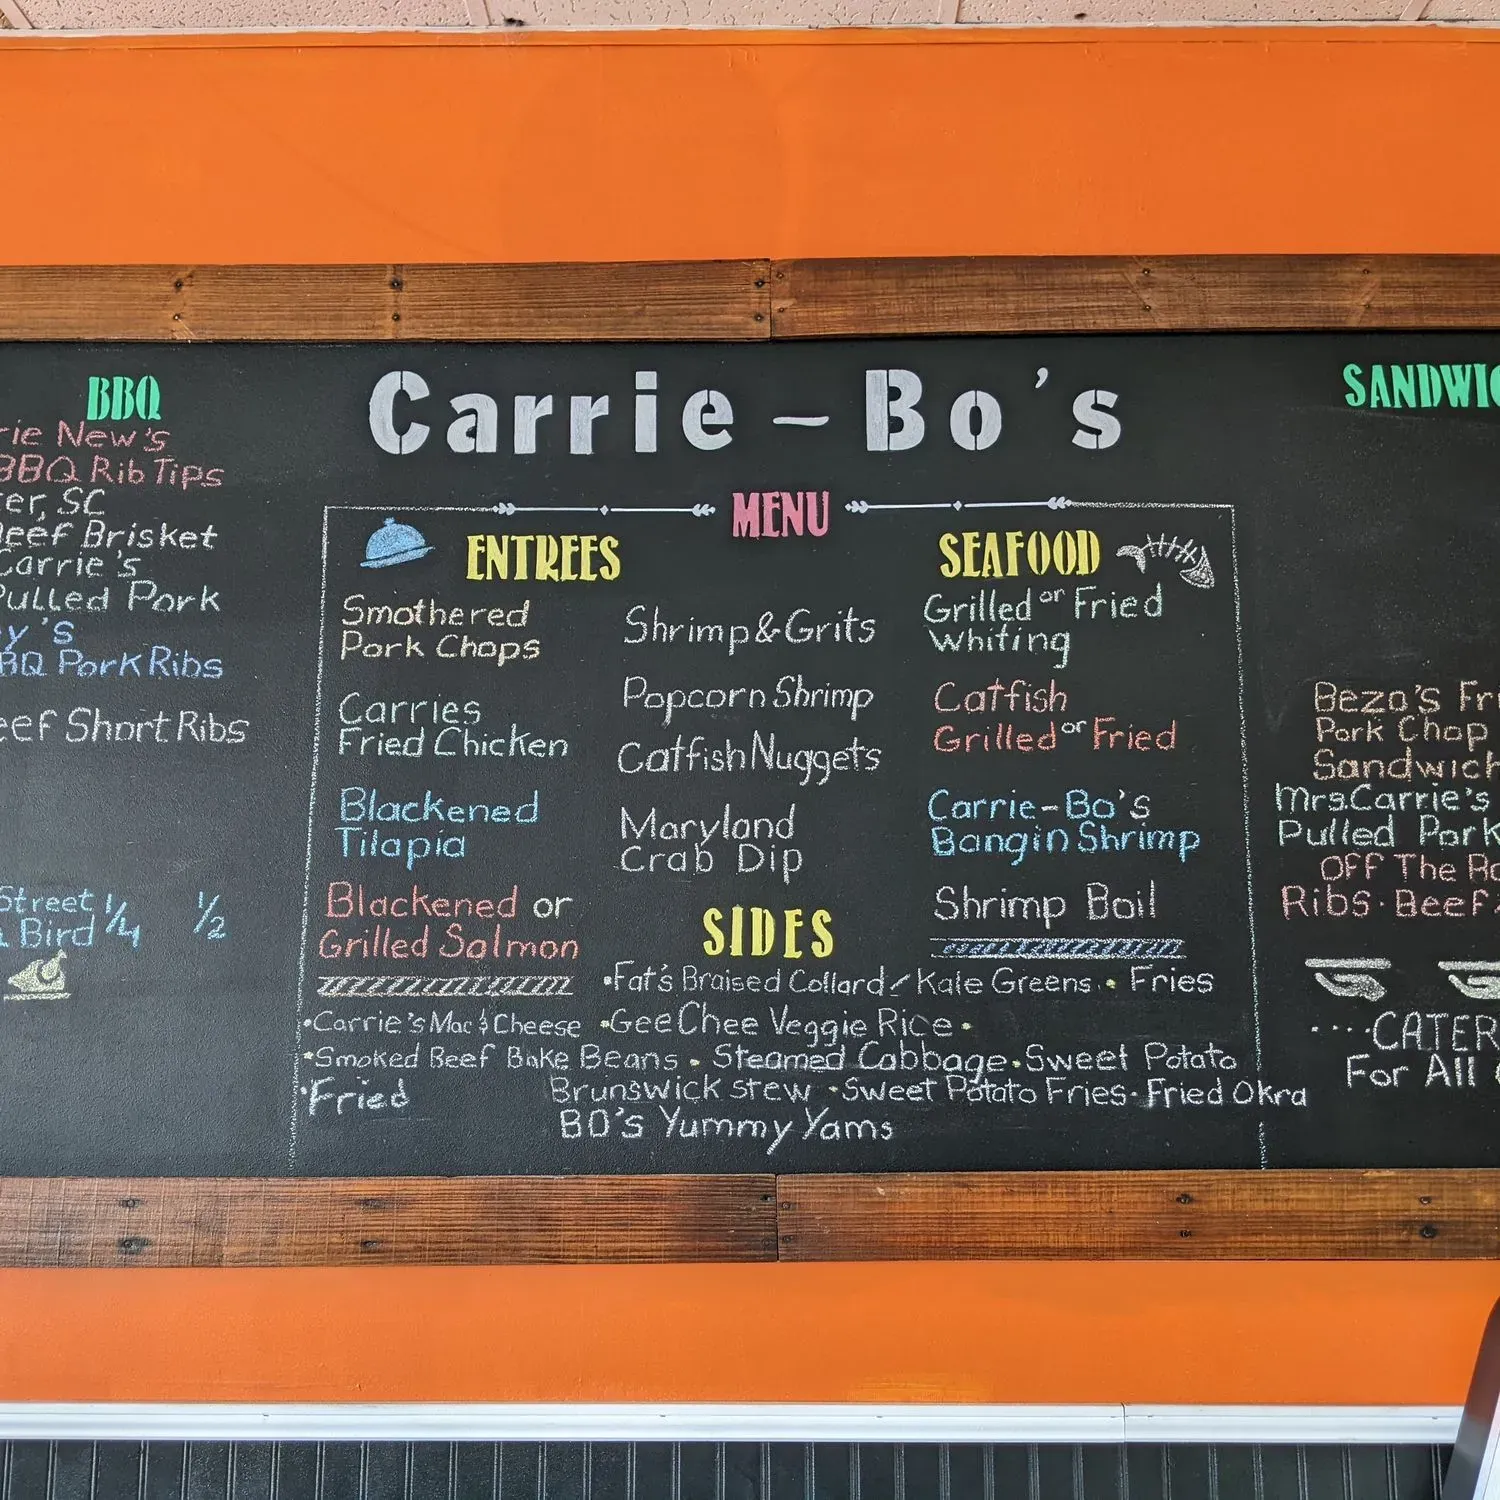 Carrie-Bo's
MENU
BBQ
New's
BBQ Rib Tips
SC
Beef Brisket
Carrie's
Pulled Pork
BBQ Pork Ribs
Beef Short Ribs
Street 1/4 1/2
Bird
ENTREES
Smothered
Pork Chops
Carries
Fried Chicken
Blackened
Tilapia
Blackened or
Grilled Salmon
Shrimp & Grits
Popcorn Shrimp
Catfish Nuggets
Maryland
Crab Dip
SEAFOOD
Grilled or Fried
Whiting
Catfish
Grilled or Fried
Carrie-Bo's
Bangin Shrimp
Shrimp Boil
SIDES
•Fat's Braised Collard/Kale Greens • Fries
•Carrie's Mac & Cheese •Gee Chee Veggie Rice •
•Smoked Beef Bake Beans • Steamed Cabbage • Sweet Potato
•Fried Brunswick stew • Sweet Potato Fries • Fried Okra
BO'S Yummy Yams
SANDWIC
Bezo's
Pork Chop
Sandwich
Mrs. Carrie's
Pulled Pork
OFF The
Ribs • Beef
....CATER
For All